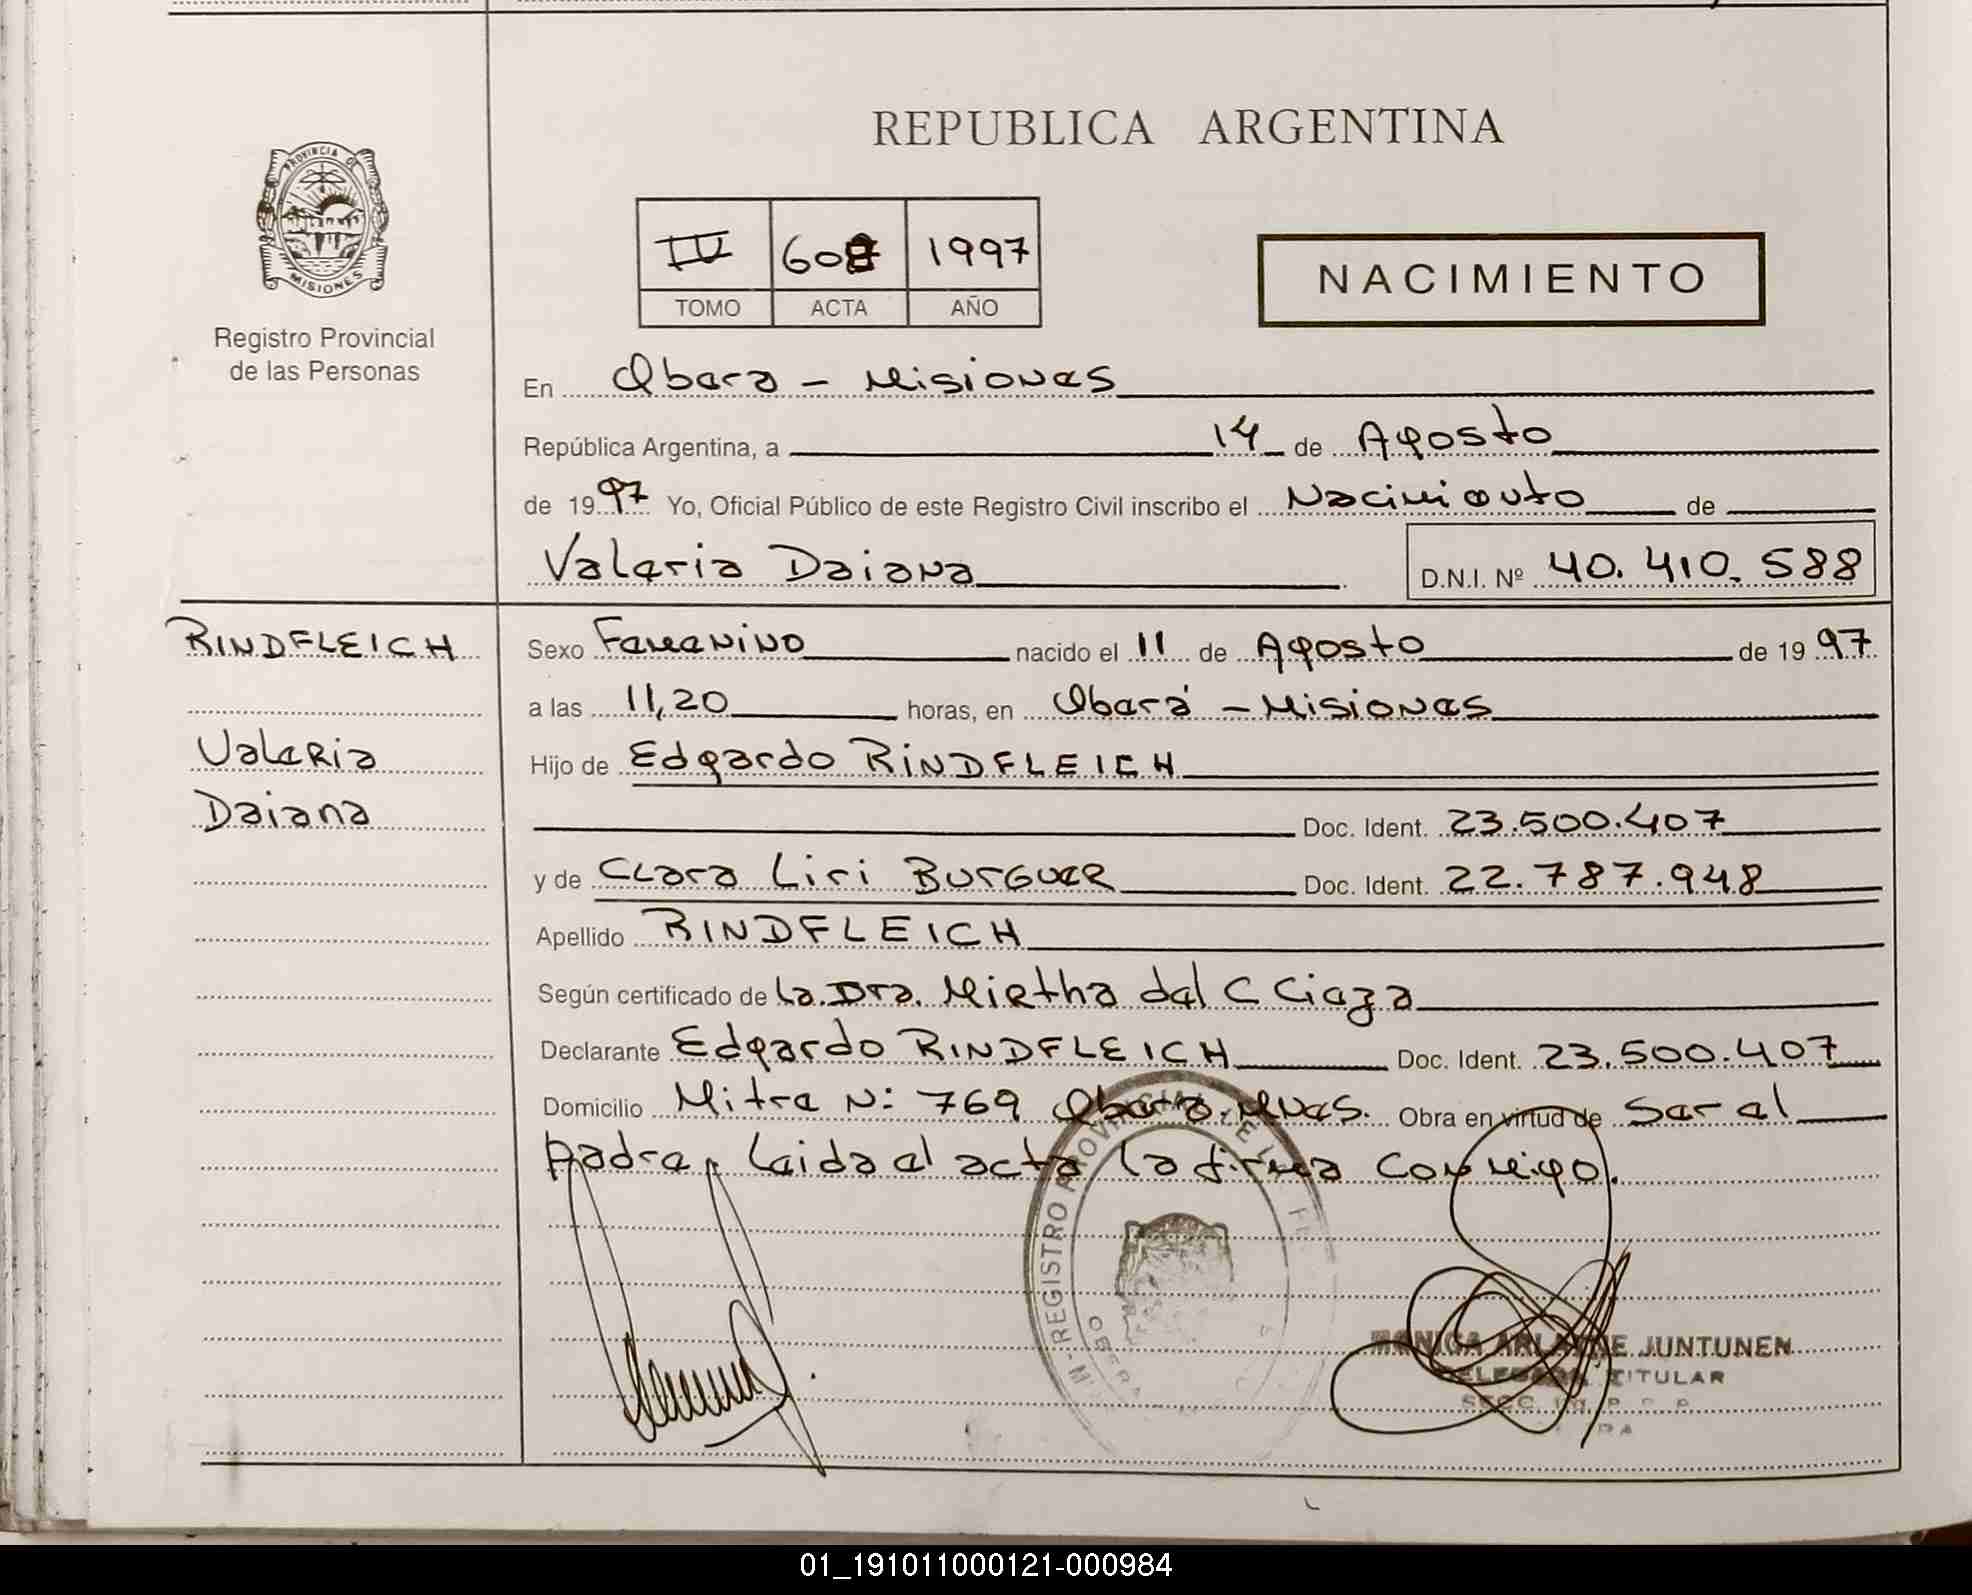 REPUBLICA ARGENTINA
PROVINCIA DE
MISIONES
Registro Provincial
de las Personas
IV 608 1997
TOMO ACTA AÑO
NACIMIENTO
En Obera - Misiones
República Argentina, a 14 de Agosto
de 1997 Yo, Oficial Público de este Registro Civil inscribo el Nacimiento de
Valeria Daiana D.N.I. Nº 40.410.588
RINDFLEICH
Valeria
Daiana
Sexo Femenino nacido el 11 de Agosto de 1997
a las 11,20 horas, en Oberá - Misiones
Hijo de Edgardo RINDFLEICH
Doc. Ident. 23.500.407
y de Clara Liri BURGUER Doc. Ident. 22.787.948
Apellido RINDFLEICH
Según certificado de la Dra. Mirtha del C Cieza
Declarante Edgardo RINDFLEICH Doc. Ident. 23.500.407
Domicilio Mitre N: 769 Obera. Mnes. Obra en virtud de Ser el
padre, Leida el acta la firma conmigo.
REGISTRO PROVINCIAL DE L
OBERA
MONICA ARLAINE JUNTUNEN
DELEGADA TITULAR
01_191011000121-000984